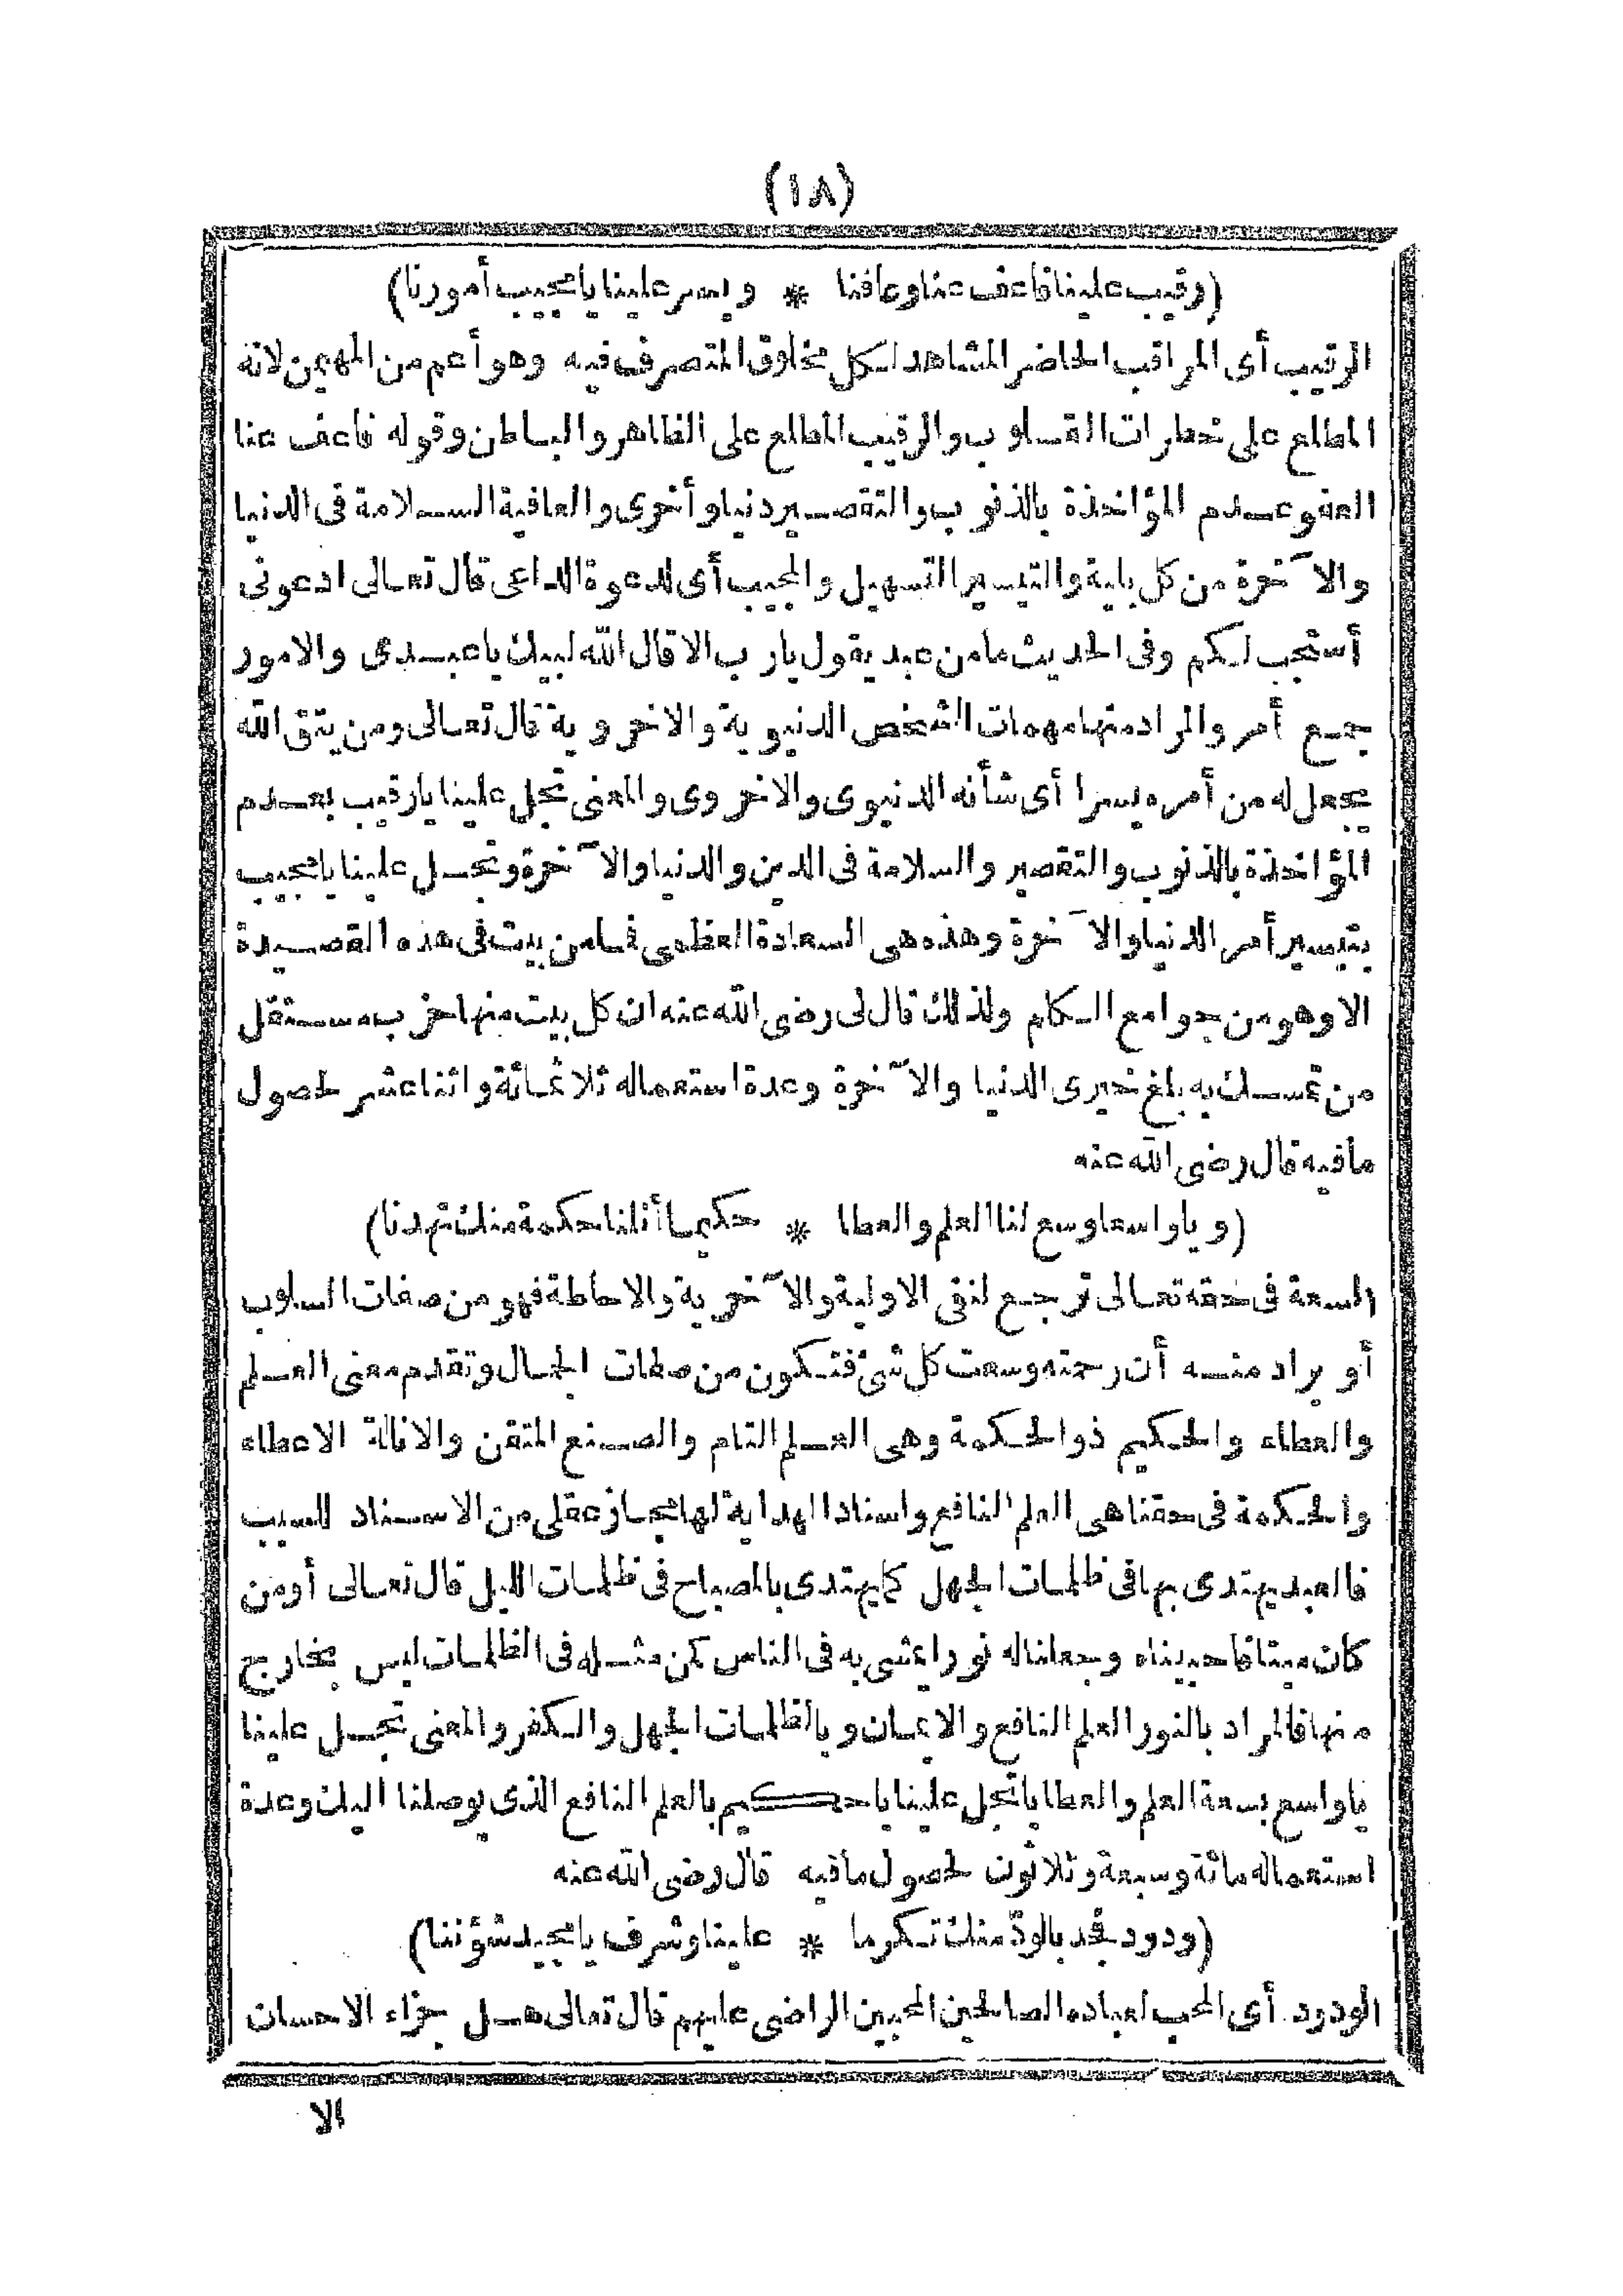 (١٨)
(رقيب علينا فاعف عنا وعافنا * ويسر علينا يا مجيب أمورنا)
الرقيب أى المراقب الحاضر المشاهد لكل مخلوق المتصرف فيه وهو أعم من المهيمن لانه
المطلع على خطرات القلوب والرقيب المطلع على الظاهر والباطن وقوله فاعف عنا
العفو عدم المؤاخذة بالذنوب والتقصير دنيا وأخرى والعافية السلامة فى الدنيا
والآخرة من كل بلية والتيسير التسهيل والمجيب أى لدعوة الداعى قال تعالى ادعونى
أستجب لكم وفى الحديث ما من عبد يقول يا رب الا قال الله لبيك يا عبدى والامور
جمع أمر والمراد منها مهمات الشخص الدنيوية والاخروية قال تعالى ومن يتق الله
يجعل له من أمره يسرا أى شأنه الدنيوى والاخروى والمعنى تجل علينا يا رقيب بعدم
المؤاخذة بالذنوب والتقصير والسلامة فى الدين والدنيا والآخرة وتجل علينا يا مجيب
بتيسير أمر الدنيا والآخرة وهذه هى السعادة العظمى فما من بيت فى هذه القصيدة
الا وهو من جوامع الكلم ولذلك قال لى رضى الله عنه ان كل بيت منها حزب مستقل
من تمسك به بلغ خيرى الدنيا والآخرة وعدة استعماله ثلاثمائة واثنا عشر لحصول
ما فيه قال رضى الله عنه
(ويا واسعا وسع لنا العلم والعطا * حكيما أنلنا حكمة منك تهدنا)
السعة فى حقه تعالى ترجع لنفى الاولية والآخرية والاحاطة فهو من صفات السلوب
أو يراد منه أن رحمته وسعت كل شئ فتكون من صفات الجمال وتقدم معنى العلم
والعطاء والحكيم ذو الحكمة وهى العلم التام والصنع المتقن والانالة الاعطاء
والحكمة فى حقنا هى العلم النافع واسناد الهداية لها مجاز عقلى من الاسناد للسبب
فالعبد يهتدى بها فى ظلمات الجهل كما يهتدى بالمصباح فى ظلمات الليل قال تعالى أومن
كان ميتا فاحييناه وجعلنا له نورا يمشى به فى الناس كمن مثله فى الظلمات ليس بخارج
منها فالمراد بالنور العلم النافع والايمان وبالظلمات الجهل والكفر والمعنى تجل علينا
يا واسع بسعة العلم والعطايا تجل علينا يا حكيم بالعلم النافع الذى يوصلنا اليك وعدة
استعماله مائة وسبعة وثلاثون لحصول ما فيه قال رضى الله عنه
(ودود فجد بالودّ منك تكرما * علينا وشرف يا مجيد شؤننا)
الودود أى المحب لعباده الصالحين المحبين الراضى عليهم قال تعالى هل جزاء الاحسان
الا